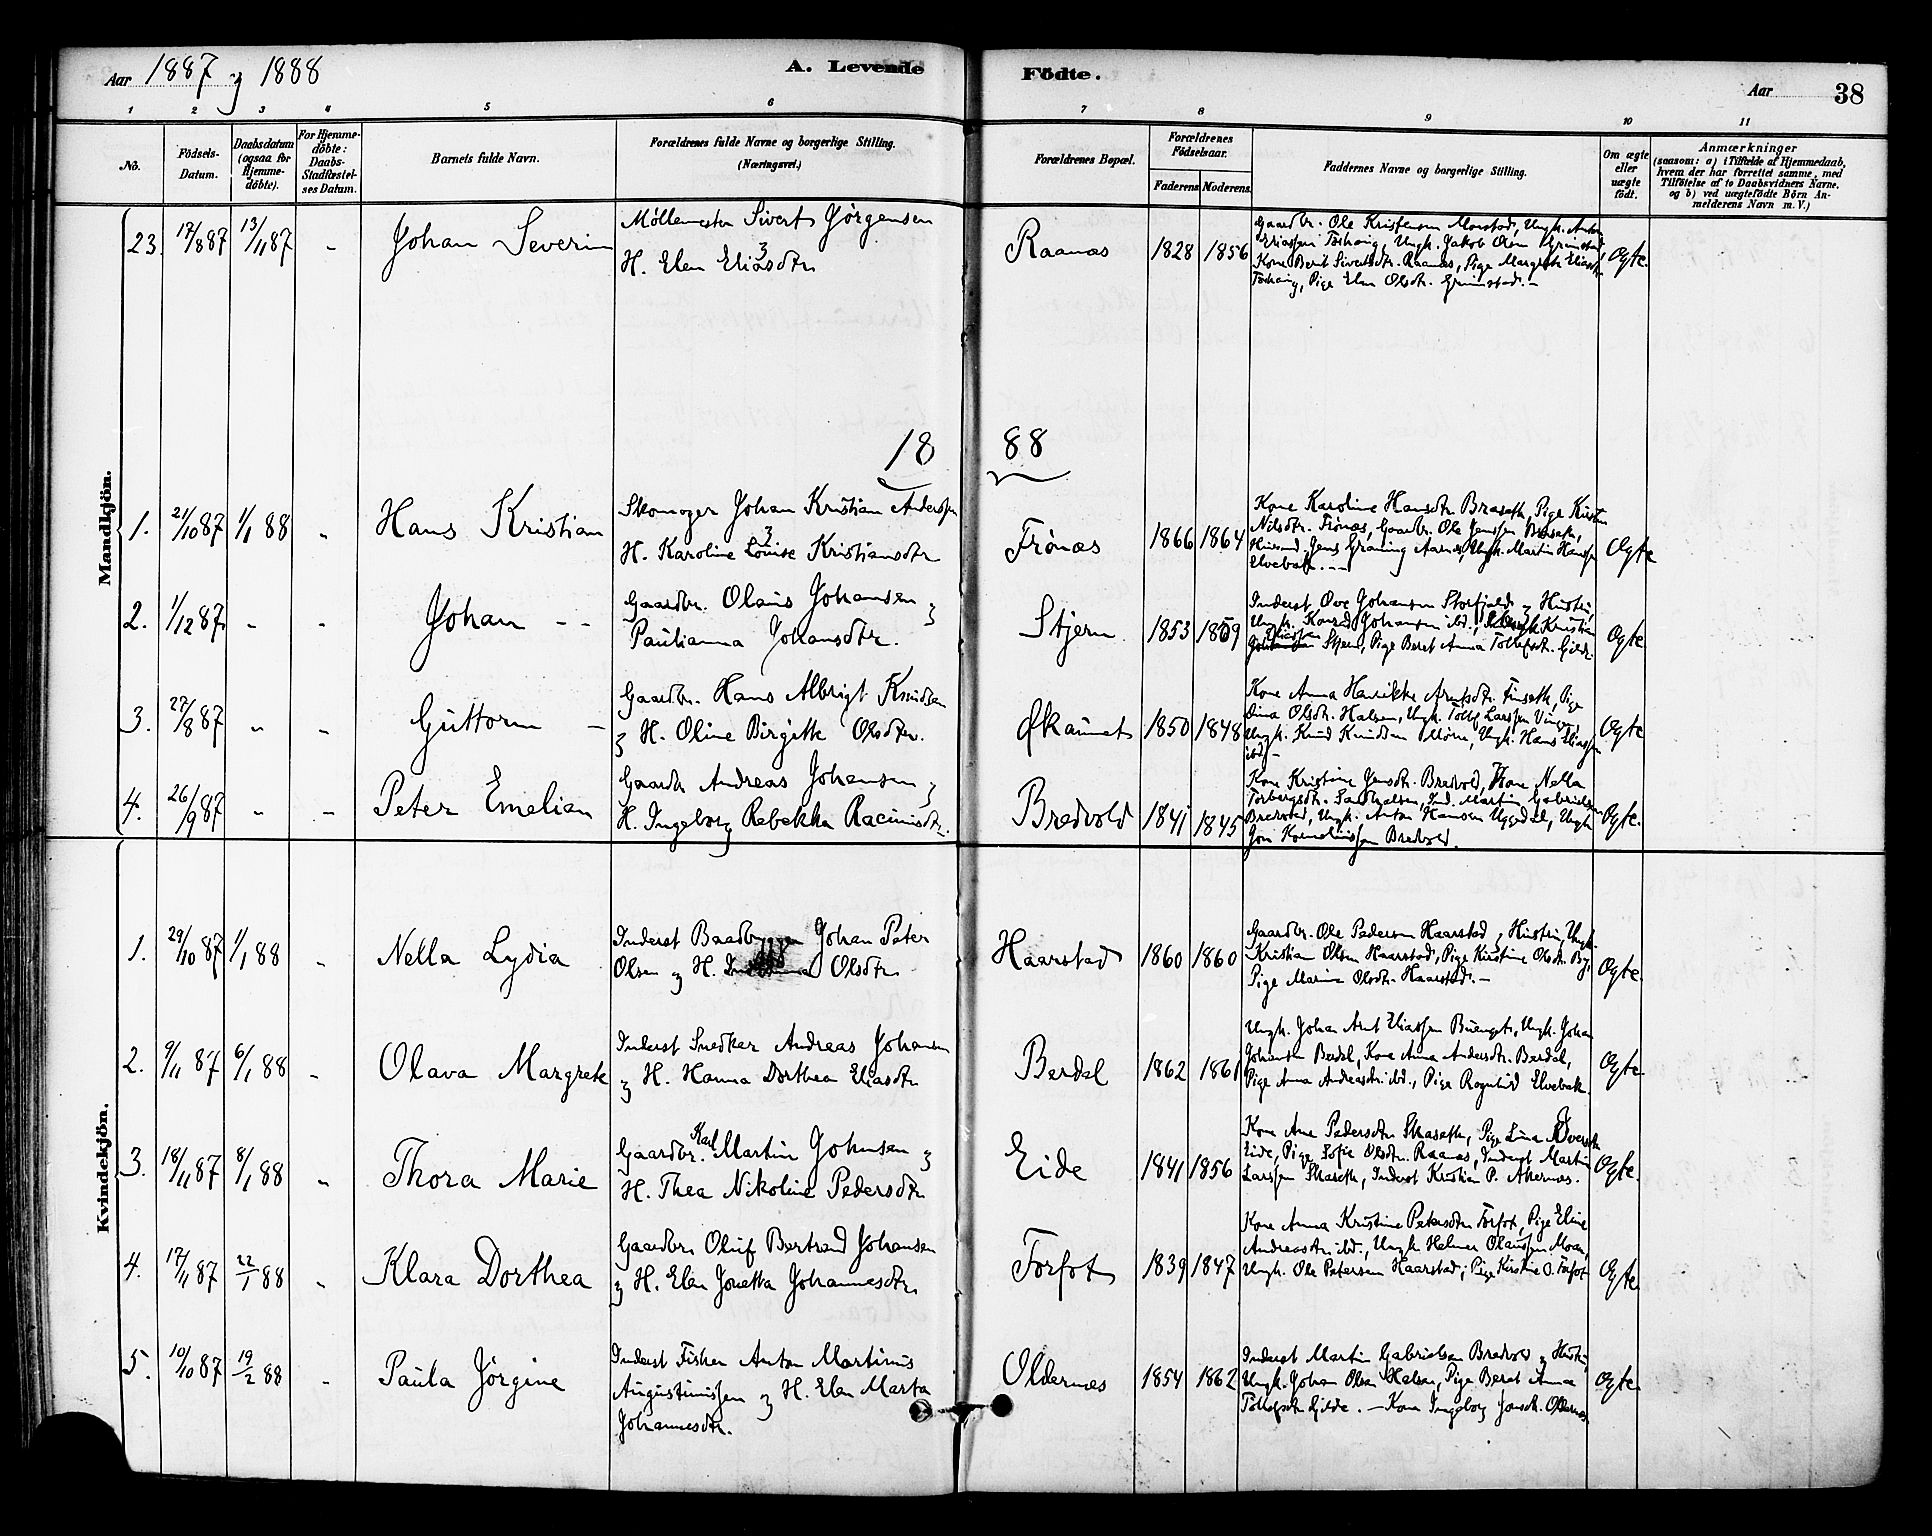 Aar 1887 og 1888
A. Levende Födte.
Aar 38
1 2 3 4 5 6 7 8 9 10 11
No.
Födsels-Datum.
Daabsdatum (ogsaa for Hjemme-döbte).
For Hjemme-döbte: Daabs-Stadfæstel-ses Datum.
Barnets fulde Navn.
Forældrenes fulde Navne og borgerlige Stilling. (Næringsvei.)
Forældrenes Bopæl.
Forældrenes Födselsaar.
Faderens Moderens
Faddernes Navne og borgerlige Stilling.
Om ægte eller uægte födt.
Anmærkninger
(saasom: a) i Tilfælde af Hjemmedaab, hvem der har forrettet samme, med Tilföielse af to Daabsvidners Navne, og b) ved uægtefödte Börn An-melderens Navn m. V.)
Mandkjön.
23. 17/8 87 13/11 87 - Johan Severin
Møllemester Sivert Jørgensen
H. Elen Eliasdtr
Raanæs 1828 1856
Gaardbr. Ole Kristensen Morstad, Ungk. Anton
Eliassen Forhaug, Ungk. Jakob Olsen Grimstad,
Kone Berit Sivertsdtr. Raanæs, Pige Margrete Eliasdtr
Forhaug, Pige Elen Olsdtr. Grimstad. -
Ægte.
18 88
1. 21/10 87 1/1 88 " Hans Kristian
Skomager Johan Kristian Anderssen
H. Karoline Louise Kristiansdtr
Frönæs 1866 1864
Kone Karoline Hansdtr Braseth, Pige Kirsten
Nilsdtr. Frönæs, Gaardbr. Ole Jenssen Braseth,
Huusmd. Jens Graning Aarnes, Ungk. Martin Hanssen
Elvebakk. --
Ægte
2. 1/12 87 " " Johan --
Gaardbr. Olaus Johansen og
Paulianna Johansdtr.
Stjern 1853 1859
Inderst Ove Johansen Storfjeld og Hustru,
Ungk. Konrad Johansen ibd., Ungk Kristian
Eliassen Stjern, Pige Beret Anna Tollefsdtr. Gilde
Ægte
3. 27/8 87 " " Guttorm -
Gaardbr. Hans Albrigt Knudsen
og H. Oline Birgitte Olsdtr.
Økaunet 1850 1848
Kone Anna Henrikke Arntsdtr. Finseth, Pige
Dina Olsdtr. Halsen, Ungk. Tollef Larssen Vinge,
Ungk. Knud Knudsen Mörre, Ungk. Hans Eliassen
ibd -
Ægte
4. 26/9 87 " - Peter Emelian
Gaardbr Andreas Johansen og
H. Ingeborg Rebekka Racinisdtr.
Bredvold 1841 1845
Kone Kristine Jensdtr. Bredvold, Kone Nella
Torbergsdtr. Sandhalsen, Ind. Martin Gabrielsen
Bredvold, Ungk. Anton Hansen Uggedal, Ungk
Jon Korneliussen Bredvold.
Ægte.
Kvindekjön.
1. 29/10 87 1/1 88 " Nella Lydia
Inderst Baadbygger Johan Peter
Olsen og H. Olsdtr
Haarstad 1860 1860
Gaardbr. Ole Pedersen Haarstad og Hustru, Ungk.
Kristian Olsen Haarstad, Pige Kirstine Olsdtr. By,
Pige Marine Olsdtr. Haarstad. -
Ægte.
2. 9/11 87 6/1 88 " Olava Margrete
Inderst Snedker Andreas Johansen
og H. Hanna Dorthea Eliasdtr
Berdal 1862 1861
Ungk. Johan Arnt Eliassen Buenget, Ungk. Johan
Johansen Berdal, Kone Anna Andersdtr. Berdal,
Pige Anna Andreasdtr. ibd., Pige Ragnhild Elvebak.
Ægte
3. 18/11 87 8/1 88 " Thora Marie
Gaardbr. Karl Martin Johnsen og
H. Thea Nikoline Pedersdtr
Eide 1841 1856
Kone Ane Pedersdtr Skaseth, Pige Lina Iversdtr
Eide, Pige Sofie Olsdtr. Raanæs, Inderst Martin
Larssen Skaseth, Inderst Kristian P. Akernæs.
Ægte.
4. 17/11 87 22/1 88 " Klara Dorthea
Gaardbr. Oluf Bertrand Johansen
og H. Elen Jonetta Johannesdtr
Forfot 1839 1847
Kone Anna Kristine Petersdtr Forfot, Pige Eline
Andreasdtr. ibd., Ungk Helmer Olaussen Moan,
Ungk. Ole Petersen Haarstad, Pige Kirstine O. Forfot
Ægte
5. 10/10 87 19/2 88 " Paula Jörgine
Inderst Fisker Anton Martinus
Augustinussen og H. Elen Marta
Johannesdtr.
Oldernæs 1854 1862
Inderst Martin Gabrielsen Bredvold og Hustru,
Ungk. Johan Olsen Halsen, Pige Beret Anna
Tollefsdtr Gilde. - Kone Ingeborg Jonsdtr. Oldernæs.
Ægte